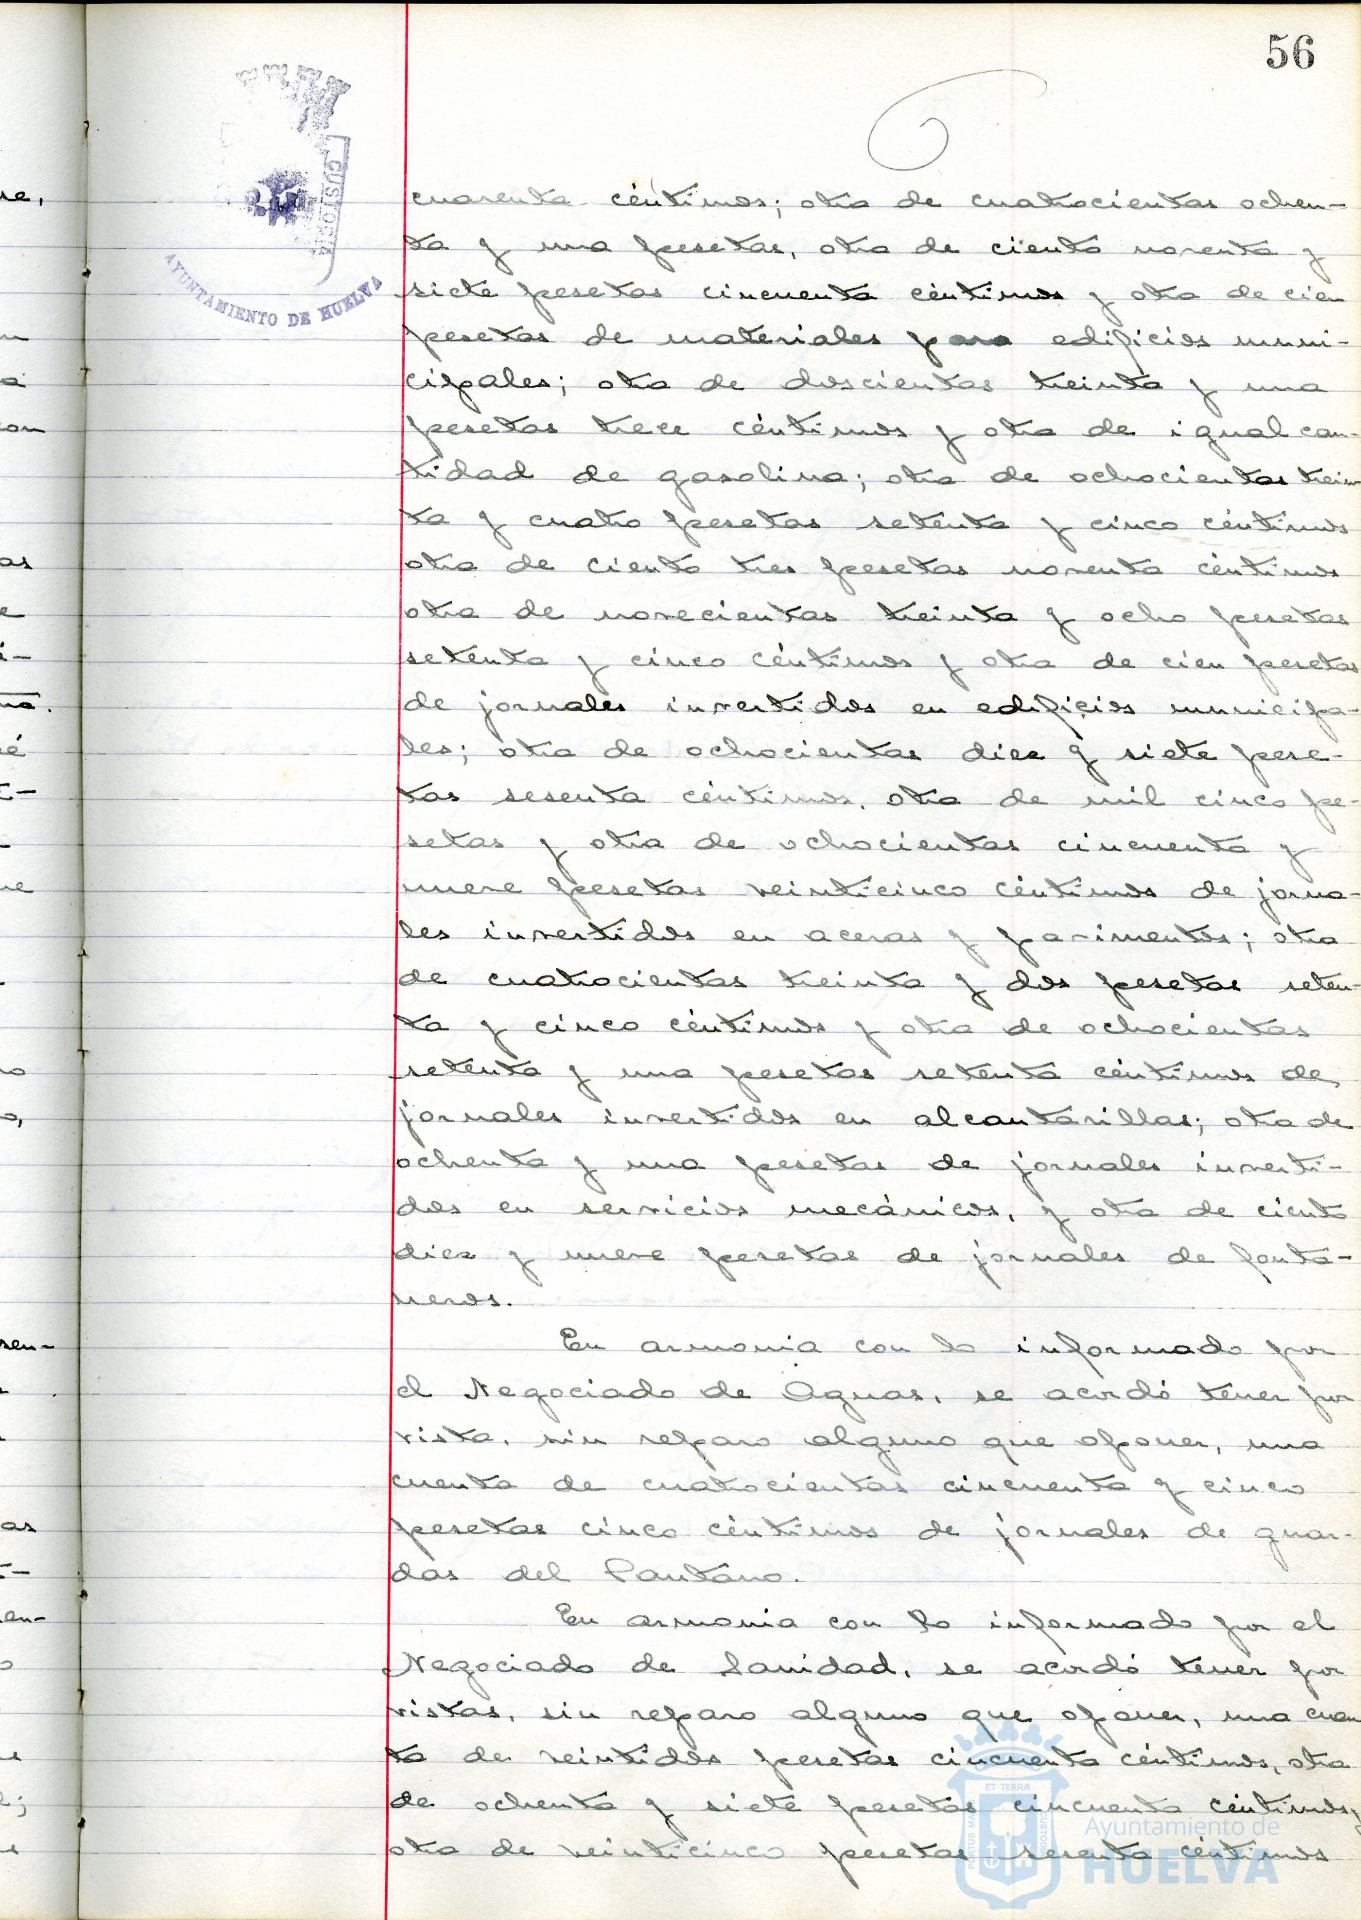 56
cuarenta céntimos; otra de cuatrocientas ochen-
ta y una pesetas, otra de ciento noventa y
siete pesetas cincuenta céntimos y otra de cien
pesetas de materiales para edificios muni-
cipales; otra de doscientas treinta y una
pesetas trece céntimos y otra de igual can-
tidad de gasolina; otra de ochocientas trein-
ta y cuatro pesetas setenta y cinco céntimos
otra de ciento tres pesetas noventa céntimos
otra de novecientas treinta y ocho pesetas
setenta y cinco céntimos y otra de cien pesetas
de jornales invertidos en edificios municipa-
les; otra de ochocientas diez y siete pese-
tas sesenta céntimos, otra de mil cinco pe-
setas y otra de ochocientas cincuenta y
nueve pesetas veinticinco céntimos de jorna-
les invertidos en aceras y pavimentos; otra
de cuatrocientas treinta y dos pesetas seten-
ta y cinco céntimos y otra de ochocientas
setenta y una pesetas setenta céntimos de
jornales invertidos en alcantarillas; otra de
ochenta y una pesetas de jornales inverti-
dos en servicios mecánicos, y otra de ciento
diez y nueve pesetas de jornales de fonta-
neros.
En armonia con lo informado por
el Negociado de Aguas, se acordó tener por
vista, sin reparo alguno que oponer, una
cuenta de cuatrocientas cincuenta y cinco
pesetas cinco céntimos de jornales de guar-
das del Pantano.
En armonia con lo informado por el
Negociado de Sanidad, se acordó tener por
vistas, sin reparo alguno que oponer, una cuen
ta de veintidos pesetas cincuenta céntimos, otra
de ochenta y siete pesetas cincuenta céntimos,
otra de veinticinco pesetas sesenta céntimos
AYUNTAMIENTO DE HUELVA
Ayuntamiento de
HUELVA